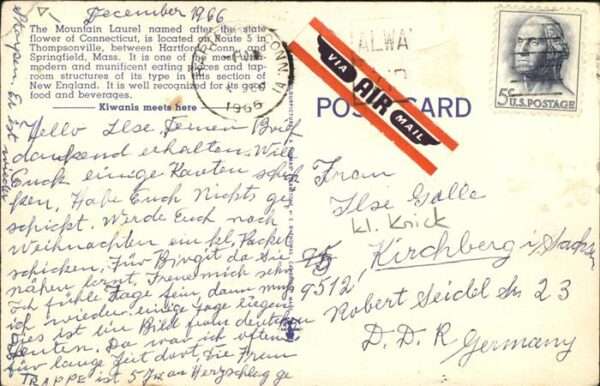 December 1966
The Mountain Laurel named after the state
flower of Connecticut, is located on Route 5 in
Thompsonville, between Hartford, Conn. and
Springfield, Mass. It is one of the most
modern and magnificent eating places and tap-
room structures of its type in this section of
New England. It is well recognized for its good
food and beverages.
Kiwanis meets here
CONN.
1966
ALWA
VIA
AIR
MAIL
5c U.S. POSTAGE
POST CARD
Hello Ilse, Deinen Brief
dankend erhalten. Will
Euch einige Karten
Habe Euch Nichts ge
schickt. Werde Euch noch
Weihnachten ein kl. Packet
schicken. Für Birgit da Sie
nähen lernt. Freue mich sehr
Ich fühle Tage fein dann muss
ich wieder einige Tage liegen
Dies ist ein Bild from deutschen
Leuten. Da war ich öfters
für lange Zeit dort. Die Frau
TRAPPE ist 5 an Herzschlag ge
Frau
Ilse Golle
kl. Krick
95
Kirchberg i/Sachsen
9512,
Robert Seidel Str 23
D.D.R Germany